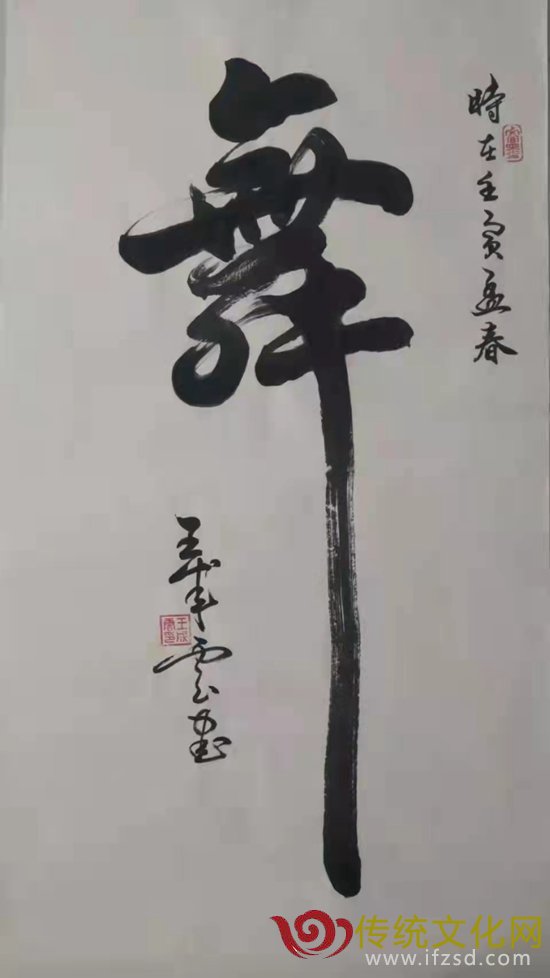 舞
時在壬寅孟春
王
雲書
传统文化网
www.ifzsd.com